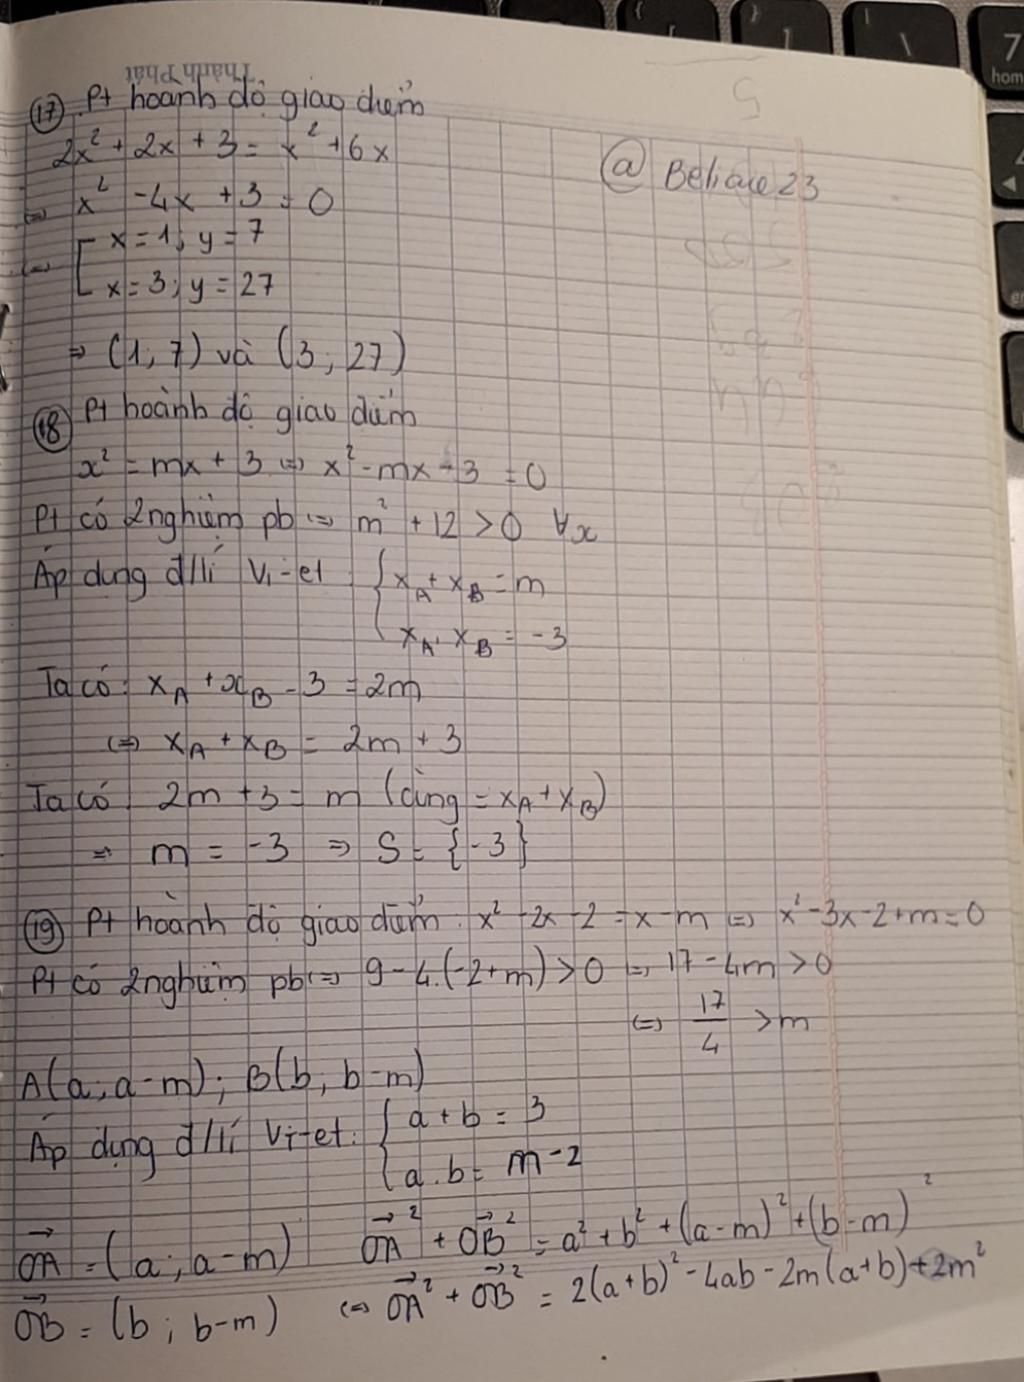 Thành Phát
(17) Pt hoành độ giao điểm
2x² + 2x + 3 = x² + 6x
@ Beliaue23
⇔ x² - 4x + 3 = 0
⇔ [ x = 1; y = 7
x = 3; y = 27
⇒ (1; 7) và (3; 27)
(18) Pt hoành độ giao điểm
x² = mx + 3 ⇔ x² - mx - 3 = 0
Pt có 2 nghiệm pb ⇔ m² + 12 > 0 ∀x
Áp dụng đ/lí Vi-et: { x_A + x_B = m
x_A . x_B = -3
Ta có: x_A + x_B - 3 = 2m
⇔ x_A + x_B = 2m + 3
Ta có: 2m + 3 = m (cùng = x_A + x_B)
⇒ m = -3 ⇒ S = {-3}
(19) Pt hoành độ giao điểm: x² - 2x - 2 = x - m ⇔ x² - 3x - 2 + m = 0
Pt có 2 nghiệm pb ⇔ 9 - 4.(-2+m) > 0 ⇔ 17 - 4m > 0
⇔ 17/4 > m
A(a; a-m); B(b; b-m)
Áp dụng đ/lí Vi-et: { a + b = 3
a.b = m - 2
OA = (a; a-m) OA² + OB² = a² + b² + (a-m)² + (b-m)²
OB = (b; b-m) ⇔ OA² + OB² = 2(a+b)² - 4ab - 2m(a+b) + 2m²